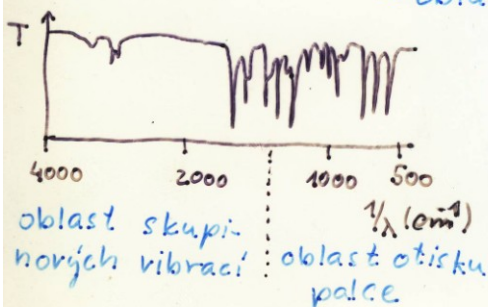 T
4000 2000 1000 500
1/λ (cm⁻¹)
oblast skupi-
nových vibrací
oblast otisku
palce